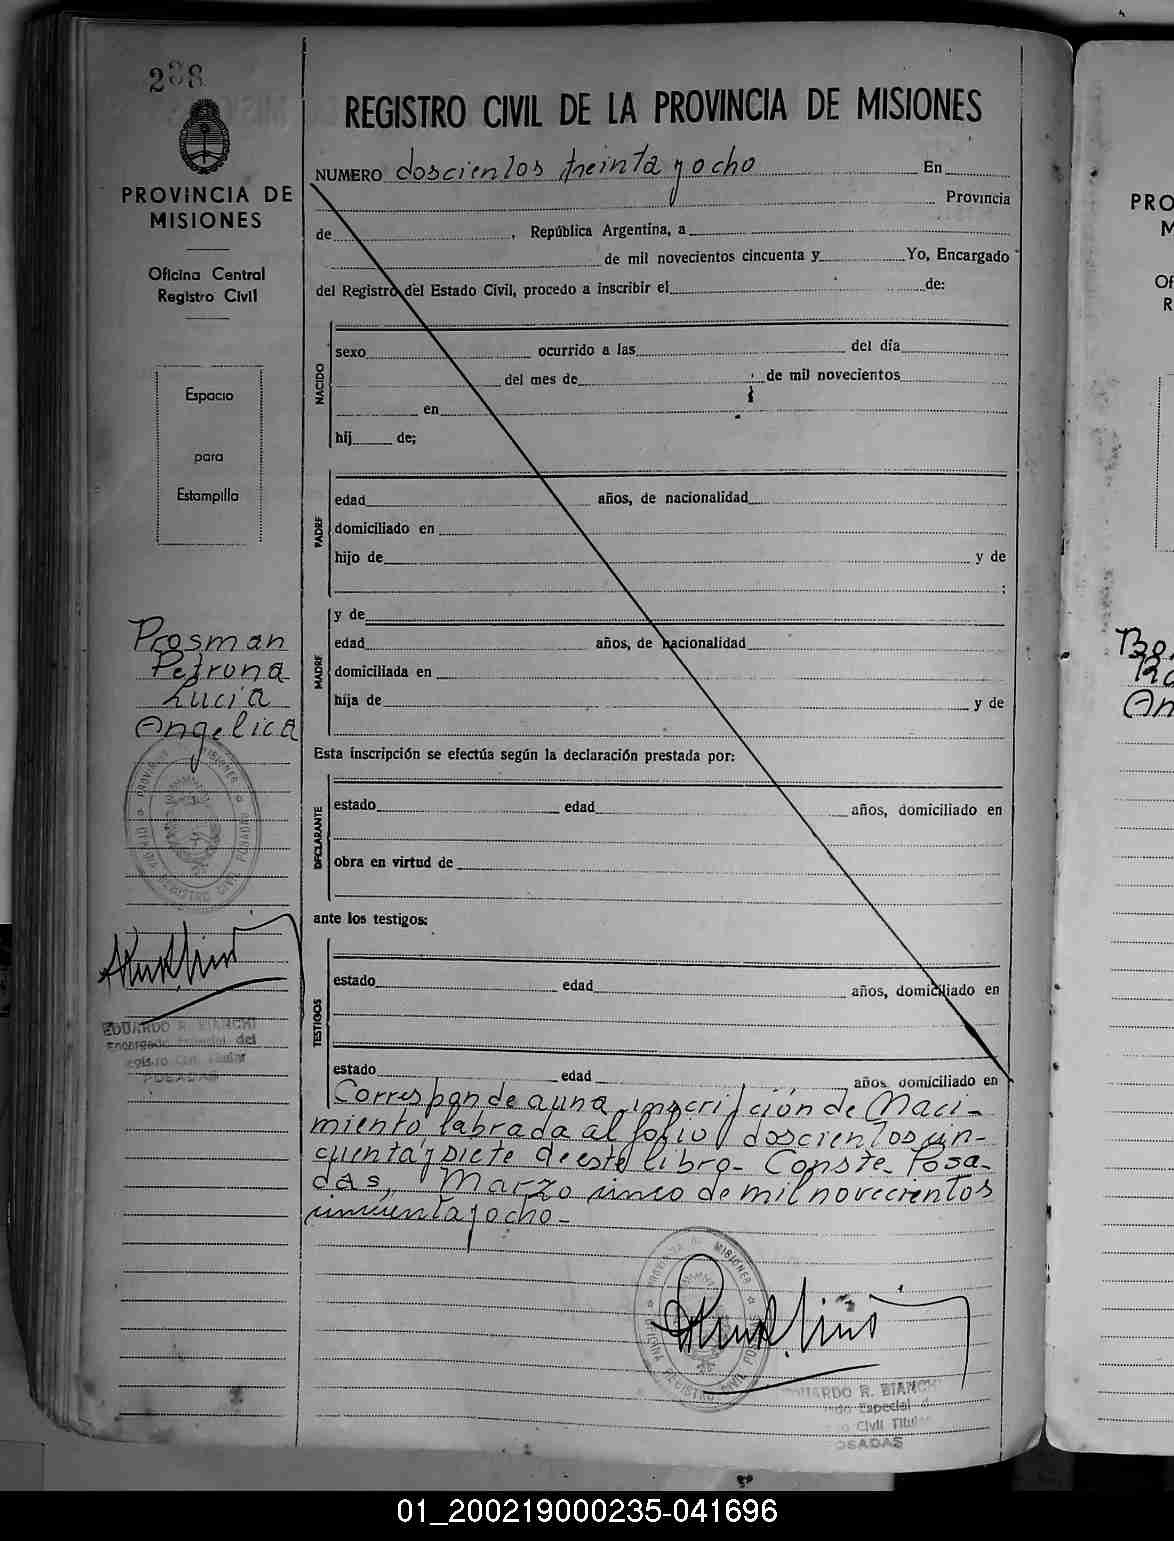 238
PROVINCIA DE
MISIONES
Oficina Central
Registro Civil
Espacio
para
Estampilla
Prosman
Petrona
Lucia
Angelica
EDUARDO R. BIANCHI
Encargado Especial del
Registro Civil Titular
POSADAS
REGISTRO CIVIL DE LA PROVINCIA DE MISIONES
NUMERO doscientos treinta y ocho En
Provincia
de , República Argentina, a
de mil novecientos cincuenta y Yo, Encargado
del Registro del Estado Civil, procedo a inscribir el de:
NACIDO
sexo ocurrido a las del día
del mes de de mil novecientos
en
hij de;
PADRE
edad años, de nacionalidad
domiciliado en
hijo de y de
;
MADRE
y de
edad años, de nacionalidad
domiciliada en
hija de y de
Esta inscripción se efectúa según la declaración prestada por:
DECLARANTE
estado edad años, domiciliado en
obra en virtud de
ante los testigos:
TESTIGOS
estado edad años, domiciliado en
estado edad años, domiciliado en
Corresponde a una inscripción de Naci-
miento labrada al folio doscientos cin-
cuenta y siete de este libro. Conste. Posa-
das, Marzo cinco de mil novecientos
cincuenta y ocho.-
PROVINCIA DE MISIONES
REGISTRO CIVIL POSADAS
EDUARDO R. BIANCHI
Especial
Civil Titular
POSADAS
PRO
M
Of
R
An
01_200219000235-041696